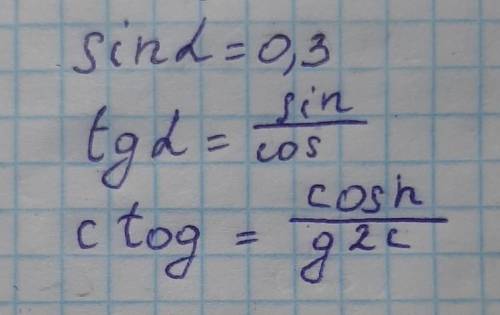 sin α = 0,3
tg α = sin / cos
ctog = cosn / g2c